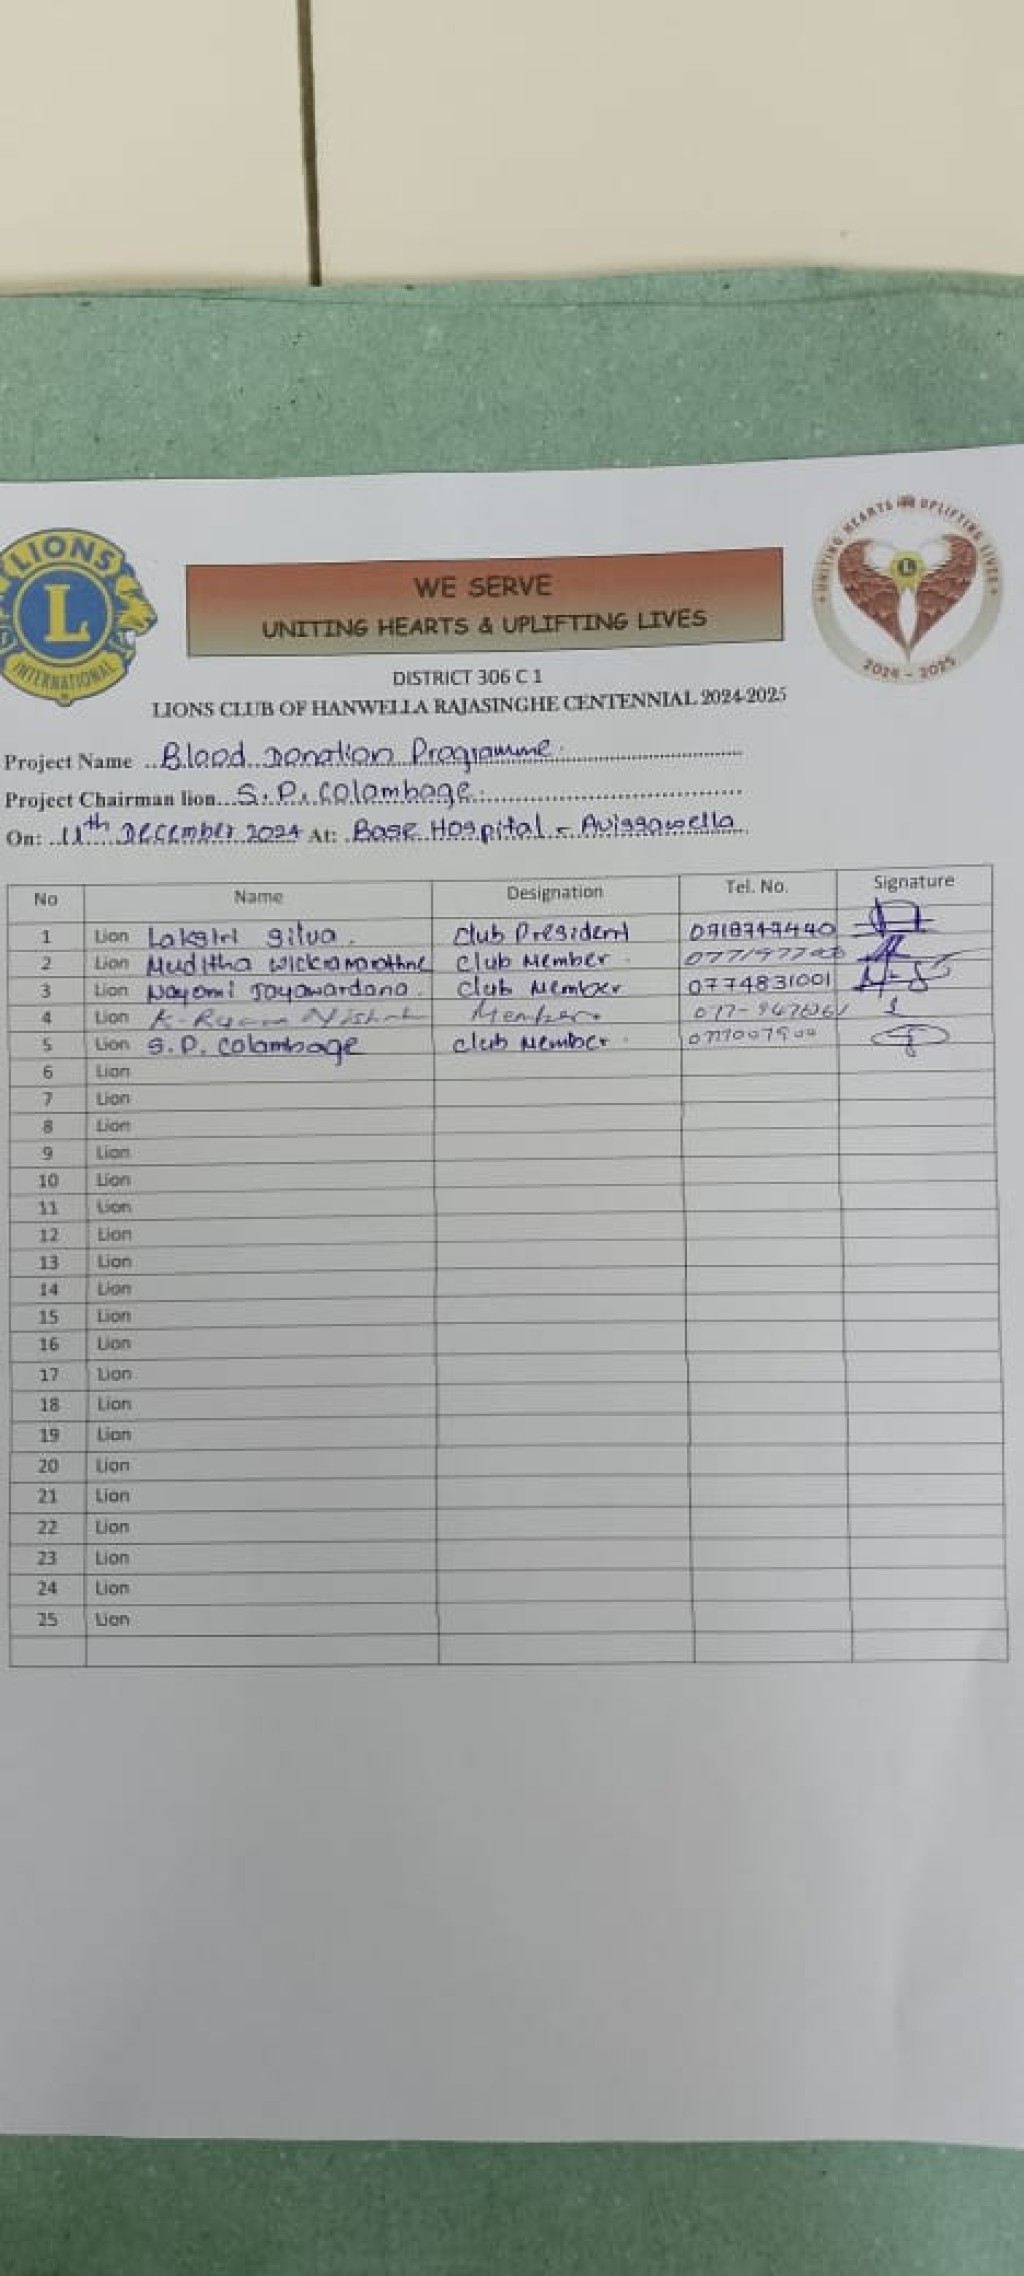 LIONS
L
INTERNATIONAL
UNITING HEARTS AND UPLIFTING LIVES
L
2024 - 2025
WE SERVE
UNITING HEARTS & UPLIFTING LIVES
DISTRICT 306 C 1
LIONS CLUB OF HANWELLA RAJASINGHE CENTENNIAL 2024-2025
Project Name Blood Donation Programme.
Project Chairman lion S. P. Colambage.
On: 11th December 2024 At: Base Hospital - Avissawella
No Name Designation Tel. No. Signature
1 Lion Laksiri Silva. Club President
2 Lion Muditha Wickramarathne Club Member.
3 Lion Nayomi Jayawardana. Club Member 0774831001
4 Lion Member
5 Lion S. P. Colambage Club Member.
6 Lion
7 Lion
8 Lion
9 Lion
10 Lion
11 Lion
12 Lion
13 Lion
14 Lion
15 Lion
16 Lion
17 Lion
18 Lion
19 Lion
20 Lion
21 Lion
22 Lion
23 Lion
24 Lion
25 Lion